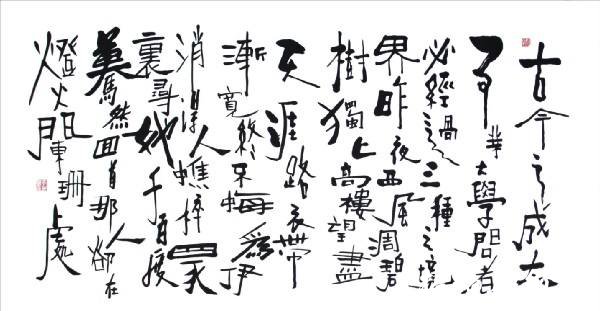 古今之成大
事業大學問者
必經過之三種之境
界昨夜西風凋碧
樹獨上高樓望盡
天涯路衣帶
漸寬終不悔爲伊
消得人憔悴眾
裏尋他千百度
驀然回首那人卻在
燈火闌珊處